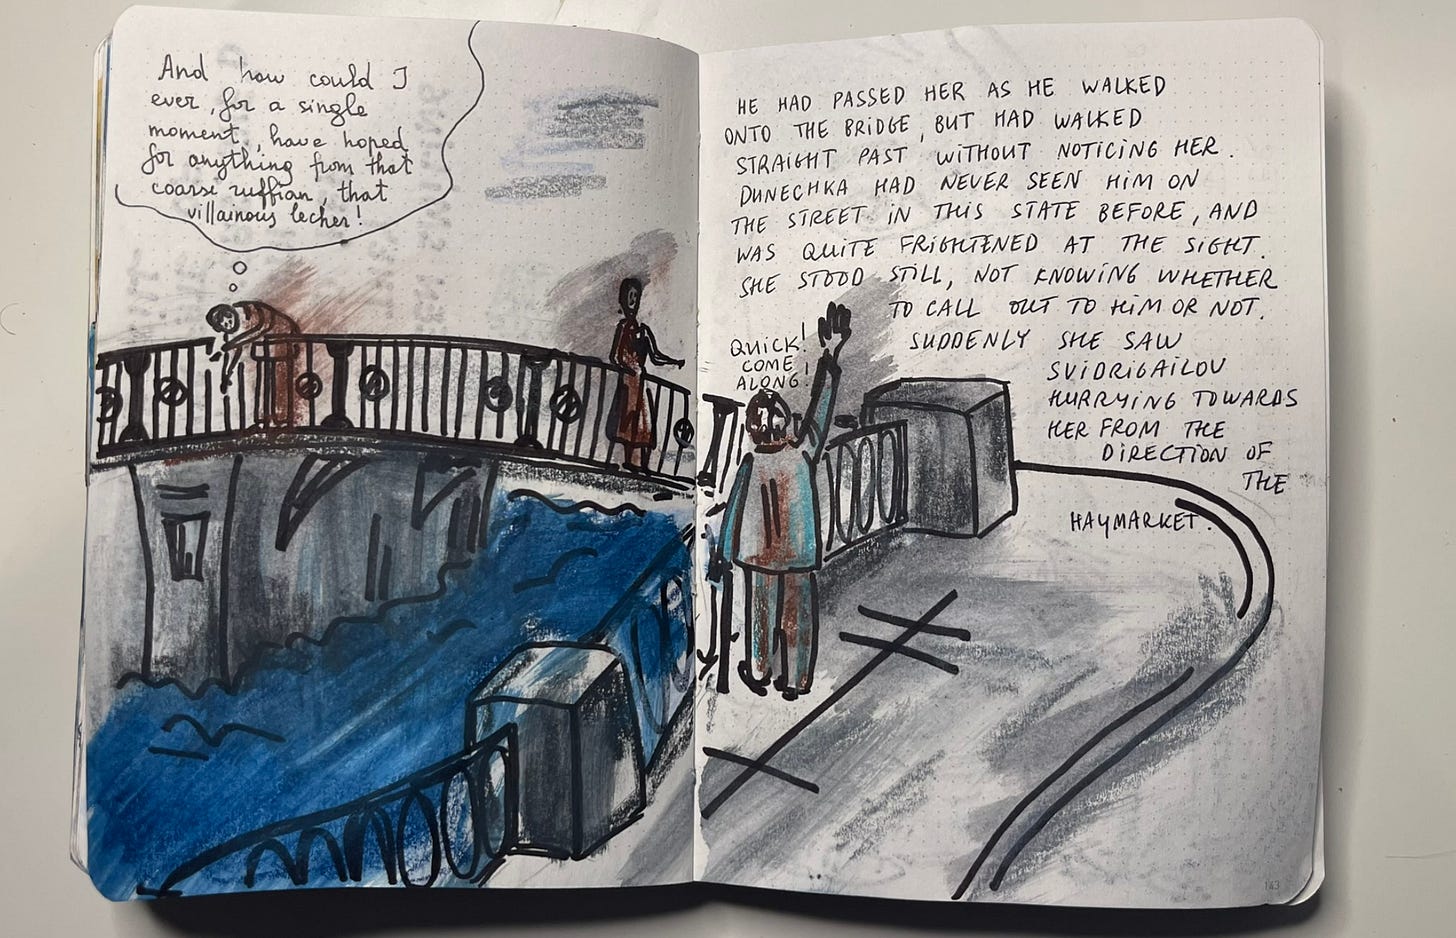 And how could I
ever, for a single
moment, have hoped
for anything from that
coarse ruffian, that
villainous lecher!
HE HAD PASSED HER AS HE WALKED
ONTO THE BRIDGE, BUT HAD WALKED
STRAIGHT PAST WITHOUT NOTICING HER.
DUNECHKA HAD NEVER SEEN HIM ON
THE STREET IN THIS STATE BEFORE, AND
WAS QUITE FRIGHTENED AT THE SIGHT.
SHE STOOD STILL, NOT KNOWING WHETHER
TO CALL OUT TO HIM OR NOT.
SUDDENLY SHE SAW
SVIDRIGAILOV
HURRYING TOWARDS
HER FROM THE
DIRECTION OF
THE
HAYMARKET.
QUICK!
COME
ALONG!
143